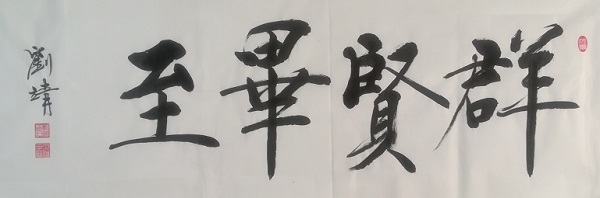 群賢畢至
劉靖